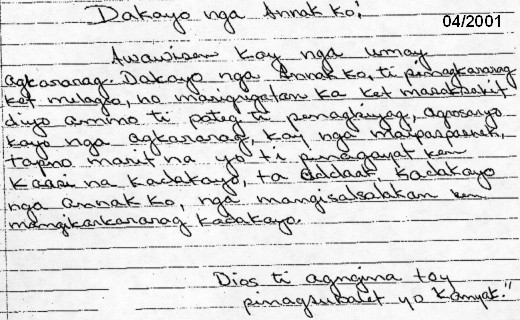 Dakayo nga Annak ko!
04/2001
Awawisen kay nga umay
agkararag. Dakayo nga Annak ko, ti pinagkararag
ket milagro, no marigrigatan ka ket masaksakit
diyo ammo ti poteg ti penagbiyag, agrosaryo
kayo nga agkararag, kay nga maipaspasnek,
tapno marit na yo ti pinagayat ken
kaasi na kadakayo, ta addaak, kadakayo
nga annak ko, nga mangisalsalakan ken
mangikarkararag kadakayo.
Dios ti agngina toy
pinagsubalet yo kanyak."